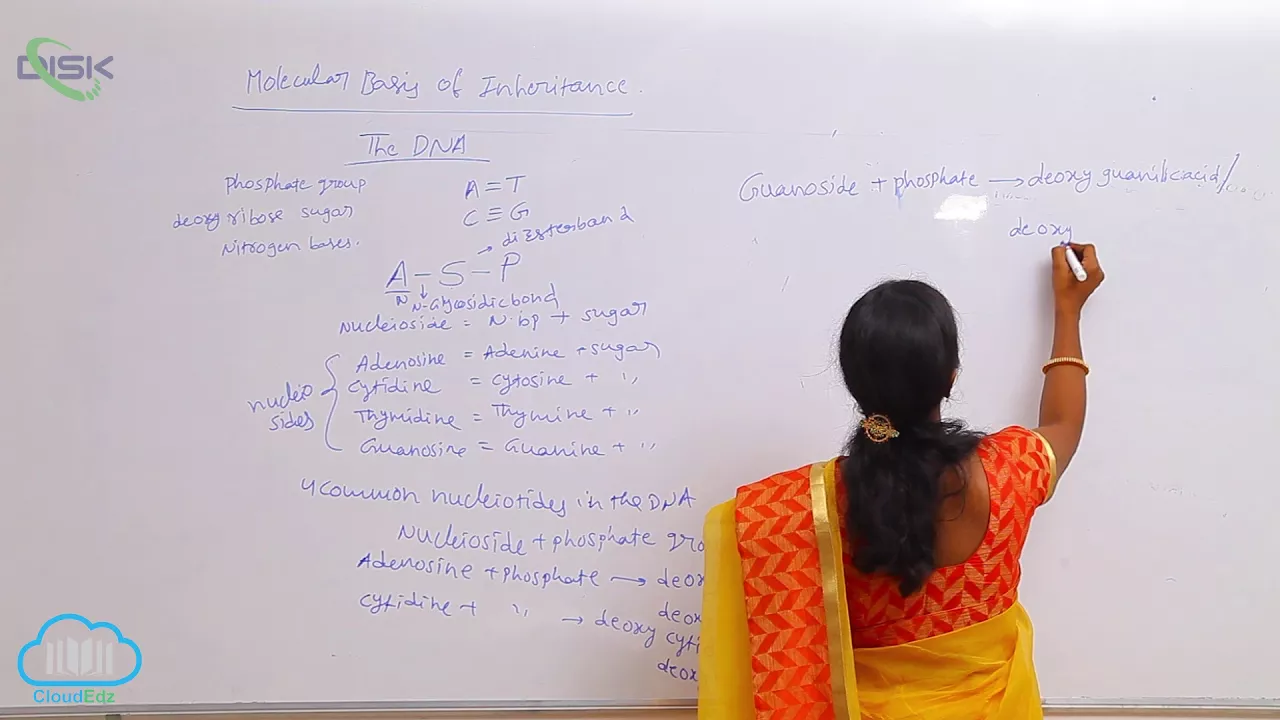 DISK
Molecular Basis of Inheritance.
The DNA
phosphate group
deoxy ribose sugar
Nitrogen bases.
A = T
C ≡ G
A – S – P → diEsterband
N N-Glycosidic bond
Nucleioside = N.bp + sugar
nucleio sides
Adenosine = Adenine + sugar
Cytidine = cytosine + ,,
Thymidine = Thymine + ,,
Guanosine = Guanine + ,,
4 Common nucleiotides in the DNA
Nucleioside + phosphate gro
Adenosine + phosphate → deox
deox
Cytidine + ,, → deoxy cyti
deox
Guanoside + phosphate → deoxy guanilic acid/
deoxy
CloudEdz